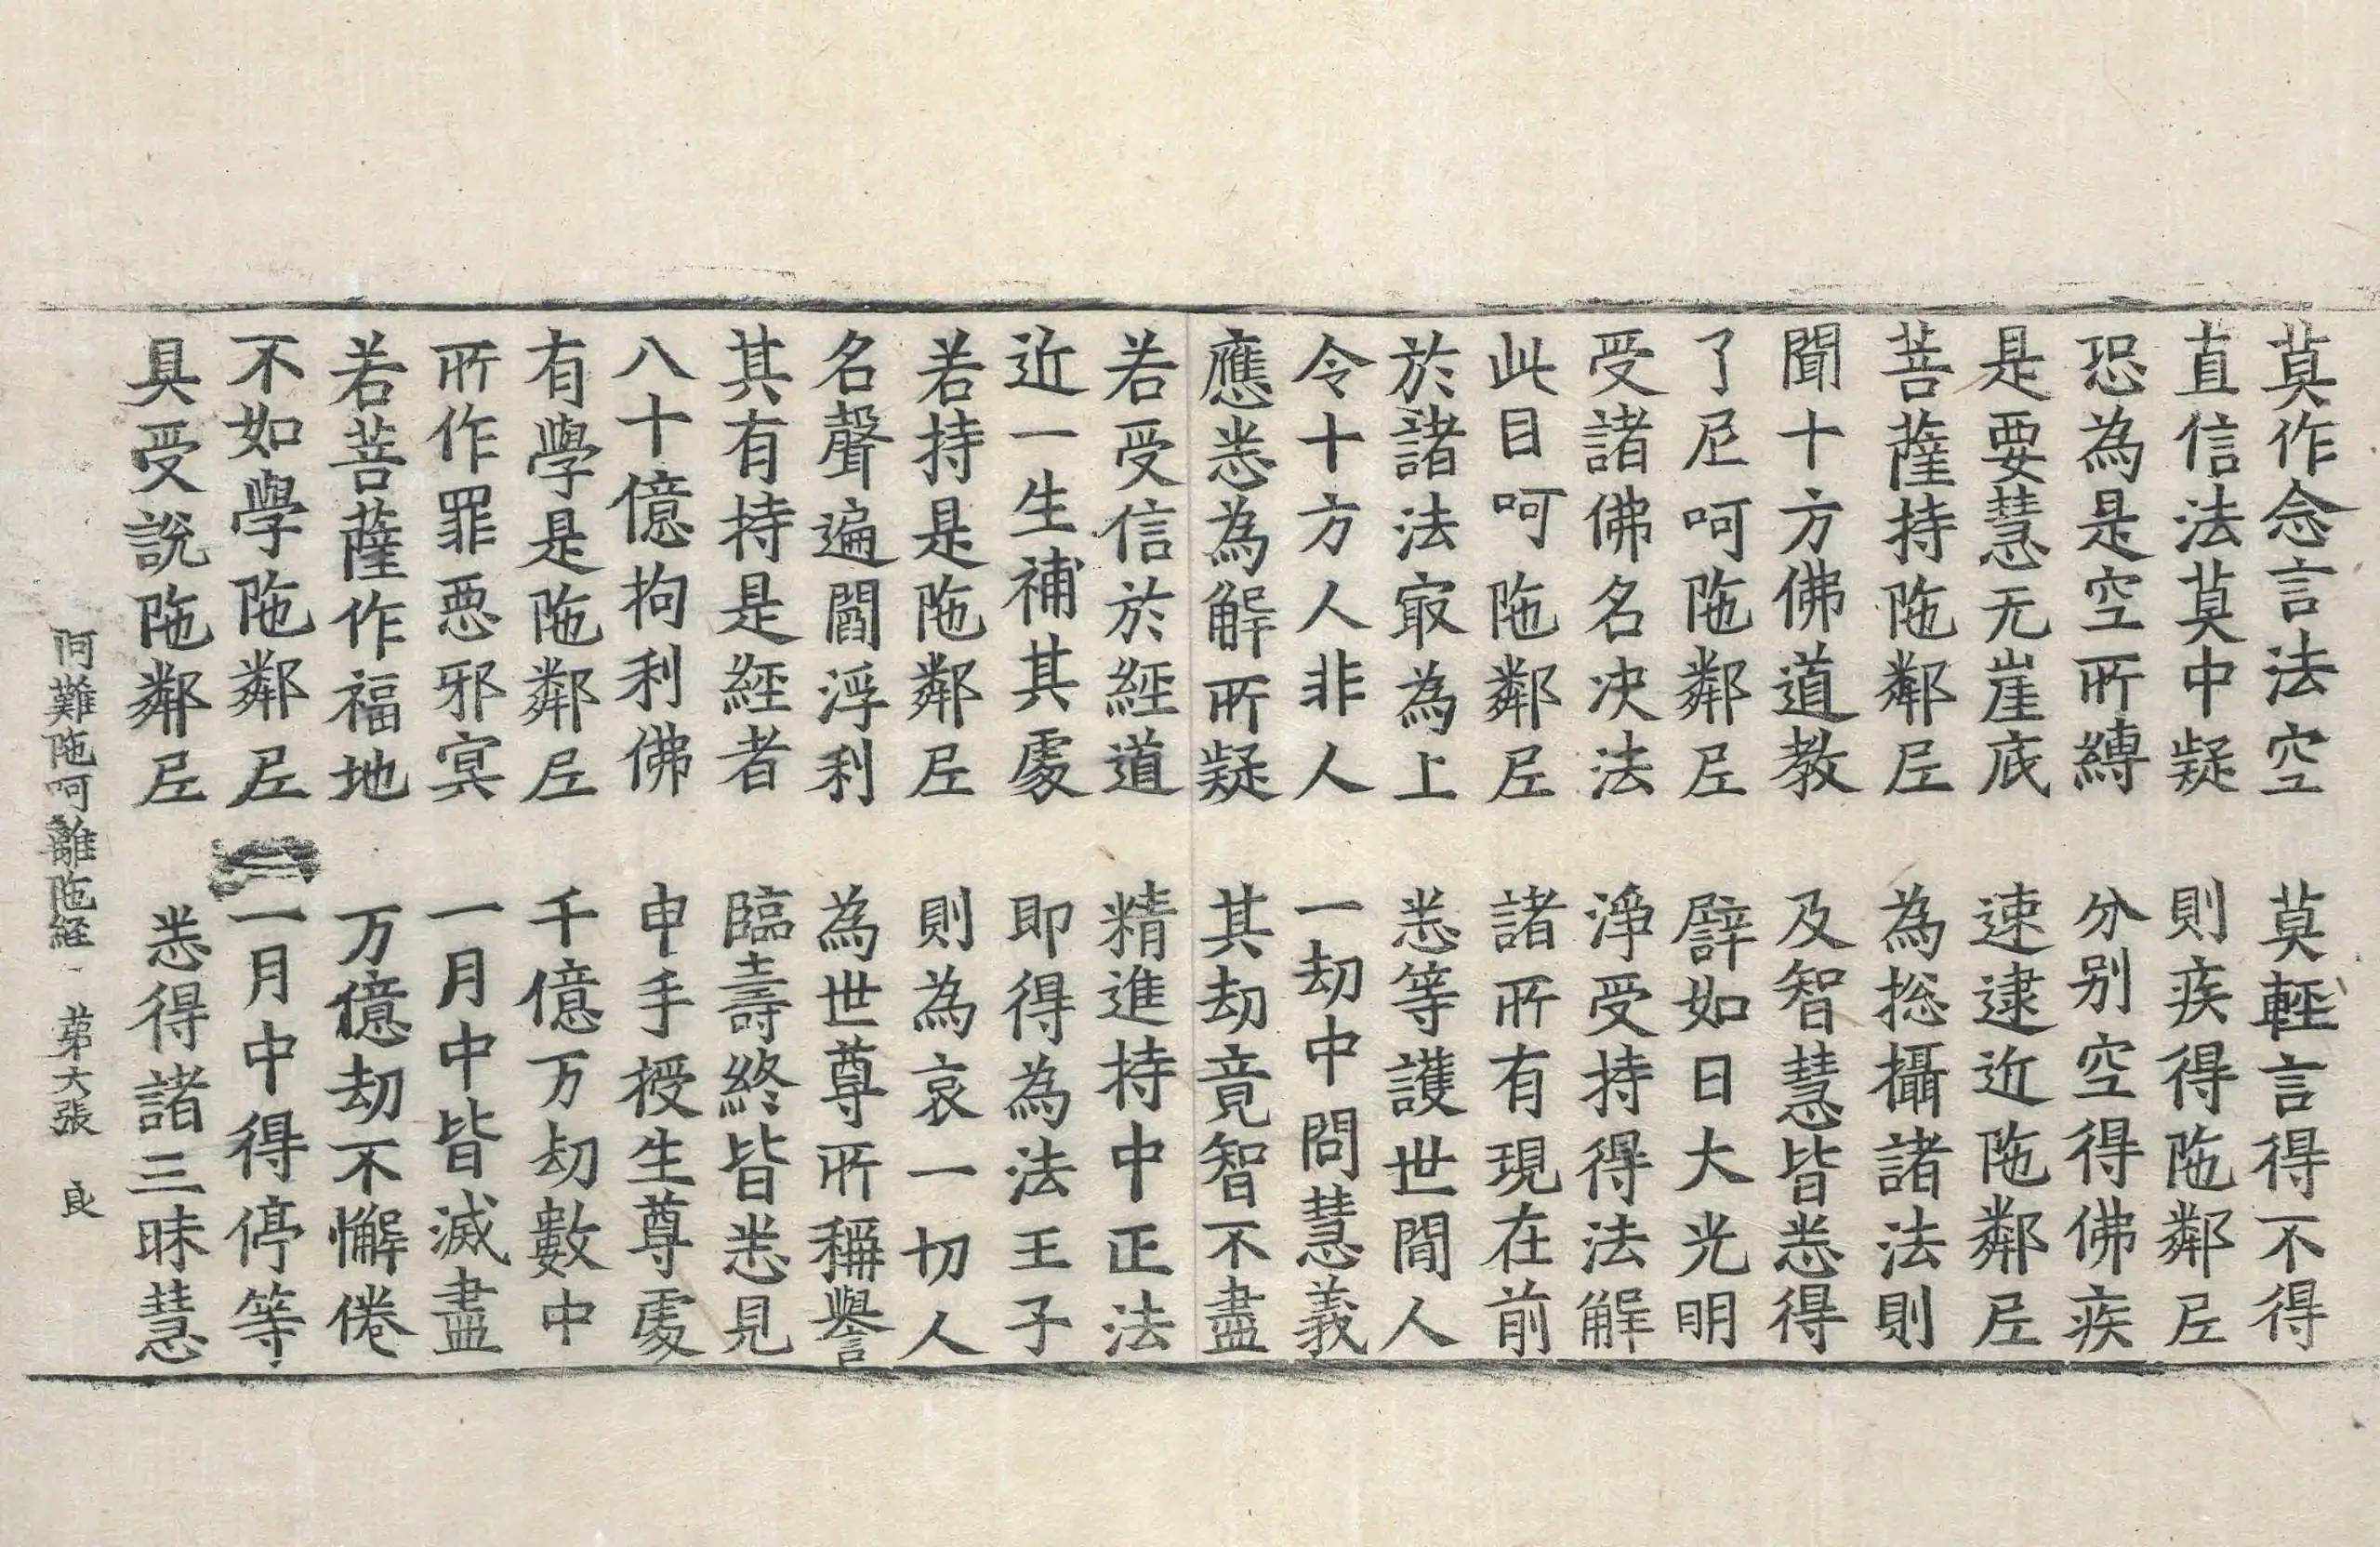 莫作念言法空　莫輕言得不得
直信法莫中疑　則疾得陁鄰𡰱
恐為是空所縛　分别空得佛疾
是要慧无崖底　速逮近陁鄰𡰱
菩薩持陁鄰𡰱　為捴攝諸法則
聞十方佛道教　及智慧皆悉得
了𡰱呵陁鄰𡰱　譬如日大光明
受諸佛名决法　淨受持得法解
此目呵陁鄰𡰱　諸所有現在前
於諸法㝡為上　悉等護世間人
令十方人非人　一劫中問慧義
應悉為解所疑　其劫竟智不盡
若受信於經道　精進持中正法
近一生補其處　即得為法王子
若持是陁鄰𡰱　則為哀一切人
名聲遍閻浮利　為世尊所稱譽
其有持是經者　臨壽終皆悉見
八十億拘利佛　申手授生尊處
有學是陁鄰𡰱　千億万劫數中
所作罪惡邪㝠　一月中皆滅盡
若菩薩作福地　万億劫不懈倦
不如學陁鄰𡰱　一月中得停等
具受說陁鄰𡰱　悉得諸三昧慧
阿難陁呵離陁經　第六張　良